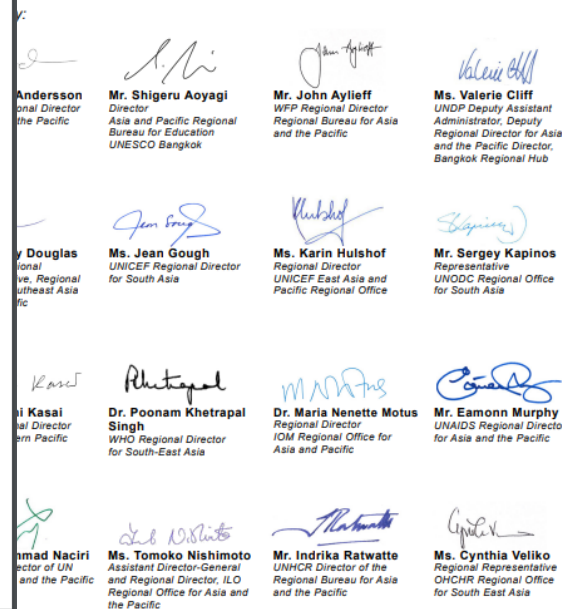 y:
Andersson
onal Director
the Pacific
Mr. Shigeru Aoyagi
Director
Asia and Pacific Regional
Bureau for Education
UNESCO Bangkok
Mr. John Aylieff
WFP Regional Director
Regional Bureau for Asia
and the Pacific
Valerie Cliff
Ms. Valerie Cliff
UNDP Deputy Assistant
Administrator, Deputy
Regional Director for Asia
and the Pacific Director,
Bangkok Regional Hub
y Douglas
ional
ive, Regional
utheast Asia
fic
Jean Gough
Ms. Jean Gough
UNICEF Regional Director
for South Asia
Khulshof
Ms. Karin Hulshof
Regional Director
UNICEF East Asia and
Pacific Regional Office
SKapinos
Mr. Sergey Kapinos
Representative
UNODC Regional Office
for South Asia
Kasai
i Kasai
al Director
ern Pacific
Dr. Poonam Khetrapal
Singh
WHO Regional Director
for South-East Asia
Dr. Maria Nenette Motus
Regional Director
IOM Regional Office for
Asia and Pacific
Mr. Eamonn Murphy
UNAIDS Regional Directo
for Asia and the Pacific
mad Naciri
ector of UN
and the Pacific
Ms. Tomoko Nishimoto
Assistant Director-General
and Regional Director, ILO
Regional Office for Asia and
the Pacific
Ratwatte
Mr. Indrika Ratwatte
UNHCR Director of the
Regional Bureau for Asia
and the Pacific
Ms. Cynthia Veliko
Regional Representative
OHCHR Regional Office
for South East Asia